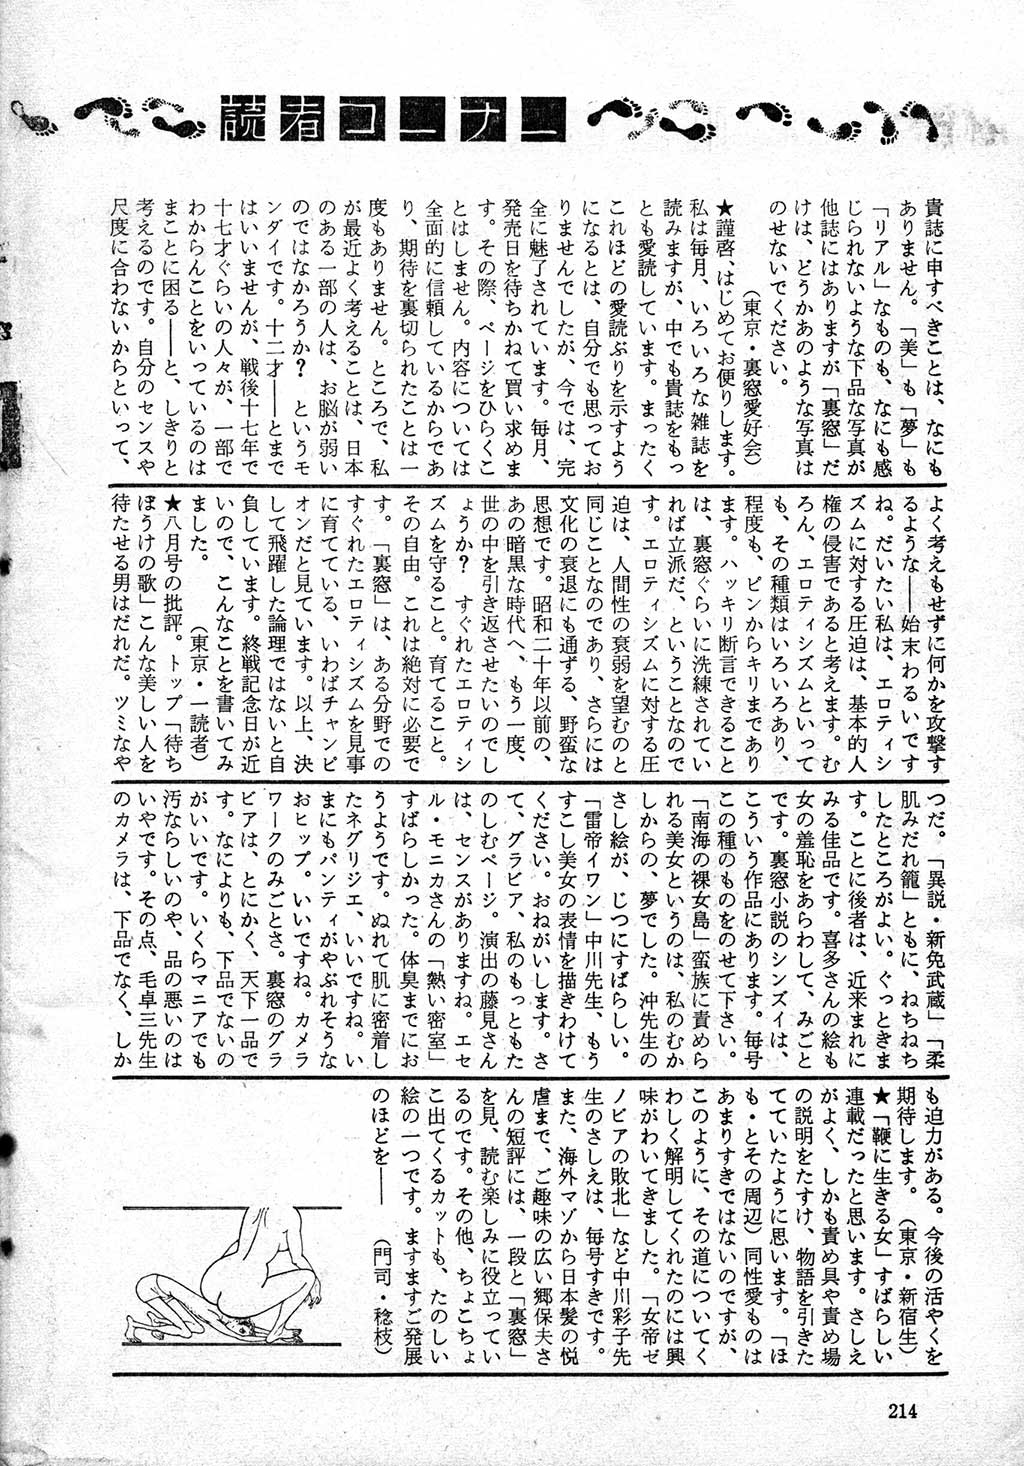 読者コーナー
貴誌に申すべきことは、なにも
ありません。「美」も「夢」も
「リアル」なものも、なにも感
じられないような下品な写真が
他誌にはありますが「裏窓」だ
けは、どうかあのような写真は
のせないでください。
（東京・裏窓愛好会）
★謹啓、はじめてお便りします。
私は毎月、いろいろな雑誌を
読みますが、中でも貴誌をもっ
とも愛読しています。まったく
これほどの愛読ぶりを示すよう
になるとは、自分でも思ってお
りませんでしたが、今では、完
全に魅了されています。毎月、
発売日を待ちかねて買い求めま
す。その際、ページをひらくこ
とはしません。内容については
全面的に信頼しているからであ
り、期待を裏切られたことは一
度もありません。ところで、私
が最近よく考えることは、日本
のある一部の人は、お脳が弱い
のではなかろうか？　というモ
ンダイです。十二才――とまで
はいいませんが、戦後十七年で
十七才ぐらいの人々が、一部で
わからんことをいっているのは
まことに困る――と、しきりと
考えるのです。自分のセンスや
尺度に合わないからといって、
よく考えもせずに何かを攻撃す
るような――始末わるいです
ね。だいたい私は、エロティシ
ズムに対する圧迫は、基本的人
権の侵害であると考えます。む
ろん、エロティシズムといって
も、その種類はいろいろあり、
程度も、ピンからキリまであり
ます。ハッキリ断言できること
は、裏窓ぐらいに洗練されてい
れば立派だ、ということなので
す。エロティシズムに対する圧
迫は、人間性の衰弱を望むのと
同じことなのであり、さらには
文化の衰退にも通ずる、野蛮な
思想です。昭和二十年以前の、
あの暗黒な時代へ、もう一度、
世の中を引き返させたいのでし
ょうか？　すぐれたエロティシ
ズムを守ること。育てること。
その自由。これは絶対に必要で
す。「裏窓」は、ある分野での
すぐれたエロティシズムを見事
に育てている、いわばチャンピ
オンだと見ています。以上、決
して飛躍した論理ではないと自
負しています。終戦記念日が近
いので、こんなことを書いてみ
ました。　　（東京・一読者）
★八月号の批評。トップ「待ち
ぼうけの歌」こんな美しい人を
待たせる男はだれだ。ツミなや
つだ。「異説・新免武蔵」「柔
肌みだれ籠」ともに、ねちねち
したところがよい。ぐっときま
す。ことに後者は、近来まれに
みる佳品です。喜多さんの絵も
女の羞恥をあらわして、みごと
です。裏窓小説のシンズイは、
こういう作品にあります。毎号
この種のものをのせて下さい。
「南海の裸女島」蛮族に責めら
れる美女というのは、私のむか
しからの、夢でした。沖先生の
さし絵が、じつにすばらしい。
「雷帝イワン」中川先生、もう
すこし美女の表情を描きわけて
ください。おねがいします。さ
て、グラビア、私のもっともた
のしむページ。演出の藤見さん
は、センスがありますね。エセ
ル・モニカさんの「熱い密室」
すばらしかった。体臭までにお
うようです。ぬれて肌に密着し
たネグリジエ、いいですね。い
まにもパンティがやぶれそうな
おヒップ。いいですね。カメラ
ワークのみごとさ。裏窓のグラ
ビアは、とにかく、天下一品で
す。なによりも、下品でないの
がいいです。いくらマニアでも
汚ならしいのや、品の悪いのは
いやです。その点、毛卓三先生
のカメラは、下品でなく、しか
も迫力がある。今後の活やくを
期待します。（東京・新宿生）
★「鞭に生きる女」すばらしい
連載だったと思います。さしえ
がよく、しかも責め具や責め場
の説明をたすけ、物語を引きた
てていたように思います。「ほ
も・とその周辺」同性愛ものは
あまりすきではないのですが、
このように、その道についてく
わしく解明してくれたのには興
味がわいてきました。「女帝ゼ
ノビアの敗北」など中川彩子先
生のさしえは、毎号すきです。
また、海外マゾから日本髪の悦
虐まで、ご趣味の広い郷保夫さ
んの短評には、一段と「裏窓」
を見、読む楽しみに役立ってい
るのです。その他、ちょこちょ
こ出てくるカットも、たのしい
絵の一つです。ますますご発展
のほどを――　　（門司・稔枝）
214